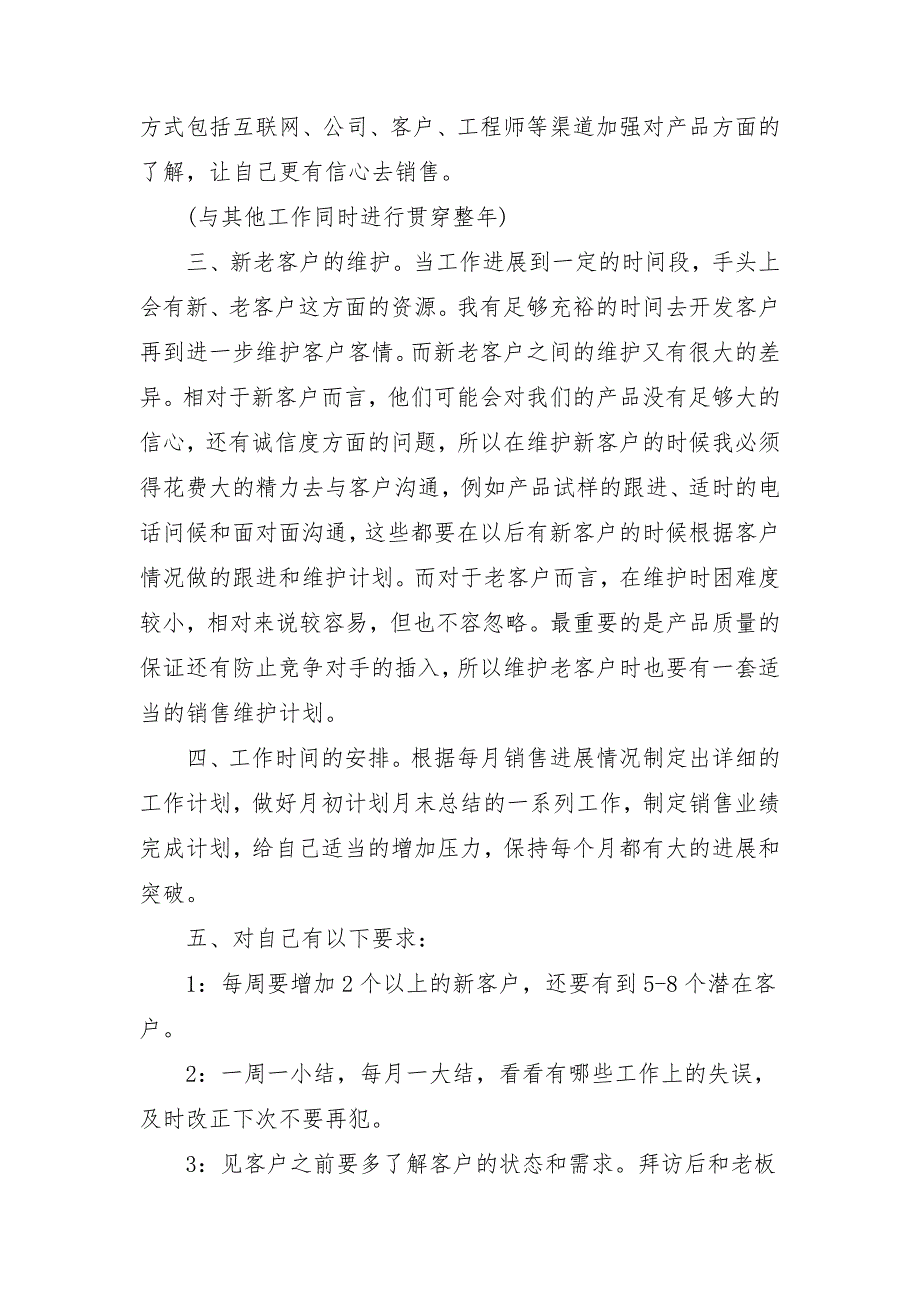 方式包括互联网、公司、客户、工程师等渠道加强对产品方面的
了解，让自己更有信心去销售。
(与其他工作同时进行贯穿整年)
三、新老客户的维护。当工作进展到一定的时间段，手头上
会有新、老客户这方面的资源。我有足够充裕的时间去开发客户
再到进一步维护客户客情。而新老客户之间的维护又有很大的差
异。相对于新客户而言，他们可能会对我们的产品没有足够大的
信心，还有诚信度方面的问题，所以在维护新客户的时候我必须
得花费大的精力去与客户沟通，例如产品试样的跟进、适时的电
话问候和面对面沟通，这些都要在以后有新客户的时候根据客户
情况做的跟进和维护计划。而对于老客户而言，在维护时困难度
较小，相对来说较容易，但也不容忽略。最重要的是产品质量的
保证还有防止竞争对手的插入，所以维护老客户时也要有一套适
当的销售维护计划。
四、工作时间的安排。根据每月销售进展情况制定出详细的
工作计划，做好月初计划月末总结的一系列工作，制定销售业绩
完成计划，给自己适当的增加压力，保持每个月都有大的进展和
突破。
五、对自己有以下要求：
1：每周要增加2个以上的新客户，还要有到5-8个潜在客
户。
2：一周一小结，每月一大结，看看有哪些工作上的失误，
及时改正下次不要再犯。
3：见客户之前要多了解客户的状态和需求。拜访后和老板